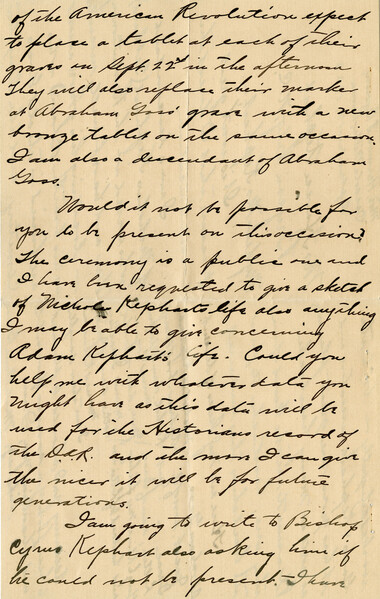 of the American Revolution expect
to place a tablet at each of their
graves on Sept. 22nd in the afternoon
They will also replace their marker
at Abraham Goss' grave with a new
bronze tablet on the same occasion.
I am also a descendant of Abraham
Goss.
Would it not be possible for
you to be present on this occasion?
The ceremony is a public one and
I have been requested to give a sketch
of Nicholas Kepharts life also anything
I may be able to give concerning
Adam Kephart's life. Could you
help me with whatever data you
might have as this data will be
used for the Historians record of
the D.A.R. and the more I can give
the nicer it will be for future
generations.
I am going to write to Bishop
Cyrus Kephart also asking him if
he could not be present. - I have